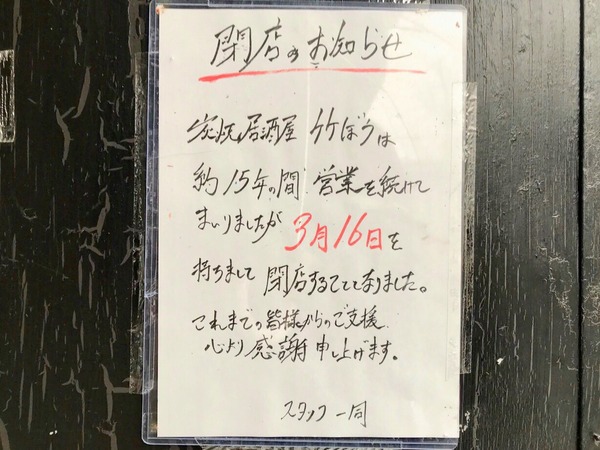 閉店のお知らせ
炭火焼居酒屋 竹ぼうは
約15年の間 営業を続けて
まいりましたが 3月16日を
持ちまして 閉店することとなりました。
これまでの皆様からのご支援
心より 感謝 申し上げます。
スタッフ一同